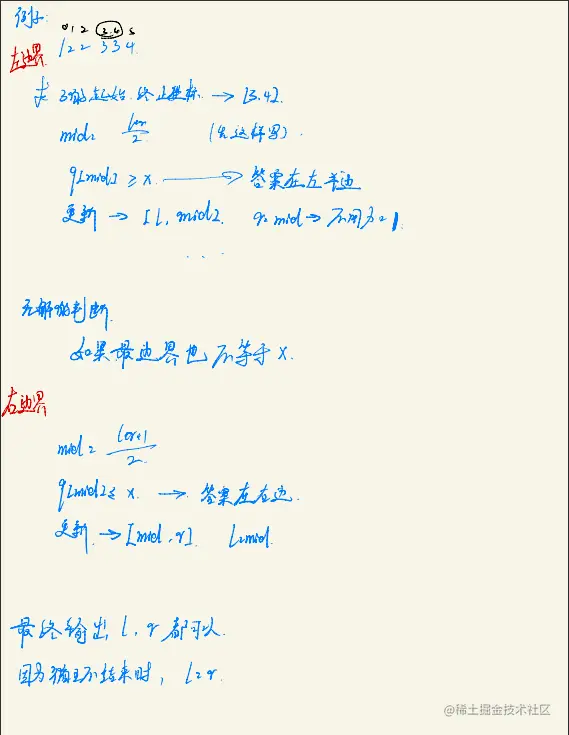 例子:
0 1 2 3.4 5
左边界 1 2 2 3 3 4.
求 3的起始.终止坐标. → [3.4].
mid= l+r/2 (先这样写).
q[mid] ≥ x. → 答案在左半边
更新 → [l, mid]. r=mid → 不用加1.
. . .
无解的判断.
如果最边界也不等于x.
右边界
mid= l+r+1/2
q[mid]≤ x. → 答案在右边.
更新. → [mid, r]. l=mid.
最终输出 l, r 都可以.
因为 结束时, l=r.
@稀土掘金技术社区